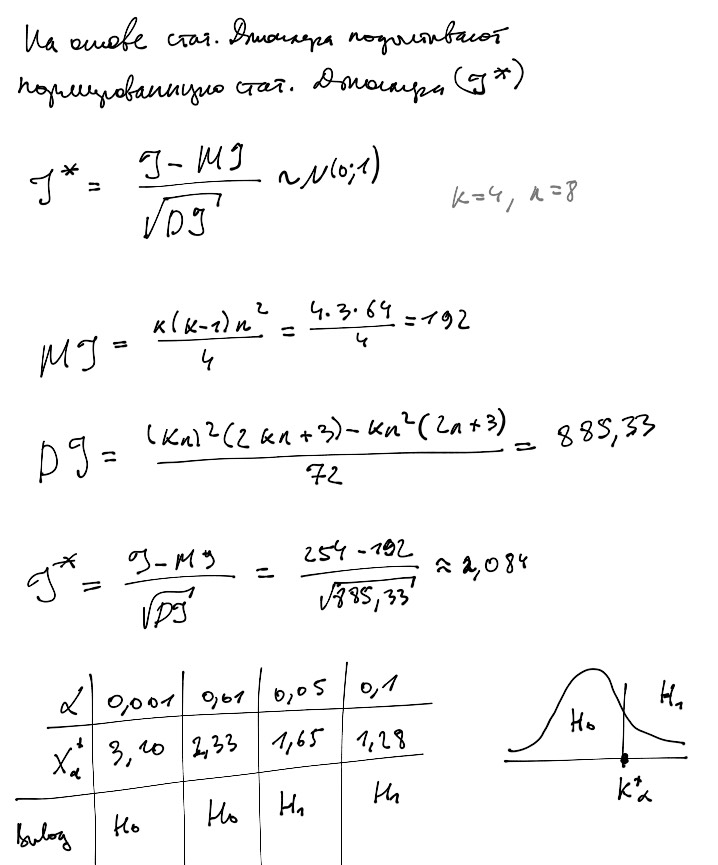 На основе стат. Джонкера подсчитывают
нормированную стат. Джонкера (J*)
J* = (J - MJ) / √DJ ~ N(0;1)
k=4, n=8
MJ = k(k-1)n² / 4 = 4·3·64 / 4 = 192
DJ = ((kn)²(2kn+3) - kn²(2n+3)) / 72 = 885,33
J* = (J - MJ) / √DJ = (254 - 192) / √885,33 ≈ 2,084
α | 0,001 | 0,01 | 0,05 | 0,1
X*α | 3,10 | 2,33 | 1,65 | 1,28
Вывод | H₀ | H₀ | H₁ | H₁
H₀ H₁
K*α